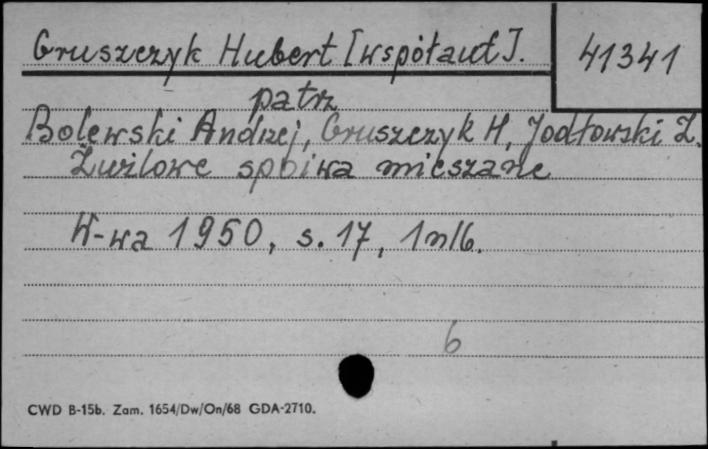 Gruszczyk Hubert [współaut].
41341
patrz
Bolewski Andrzej, Gruszczyk H, Jodłowski Z.
Żwilowe spoiwa mieszane
W-wa 1950, s. 17, 1 nlb.
6
CWD B-15b. Zam. 1654/Dw/On/68 GDA-2710.